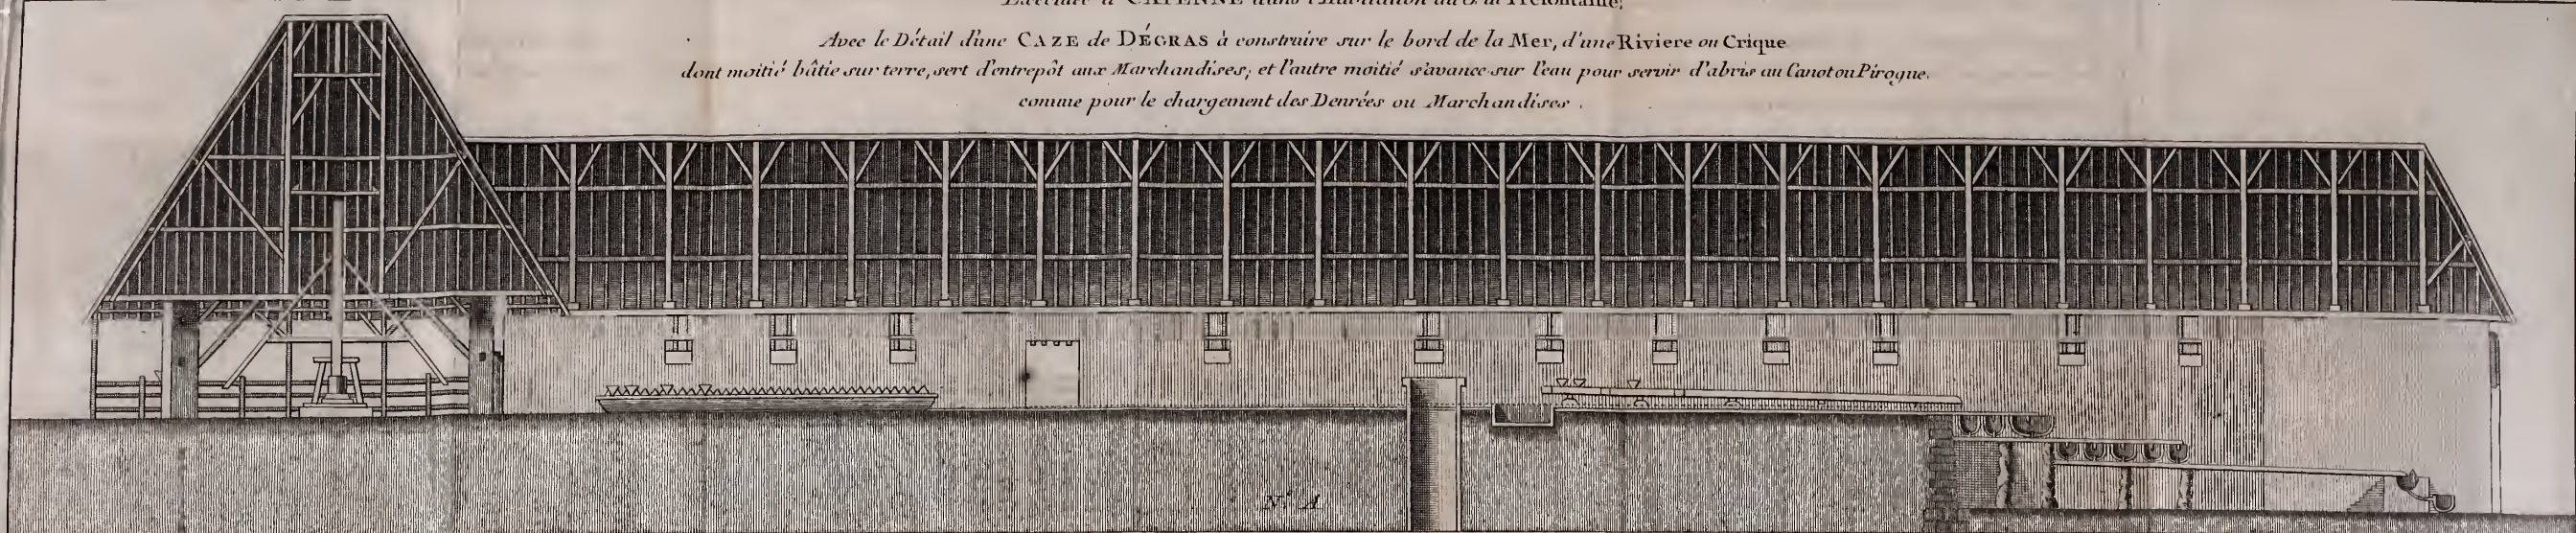 CAYENNE dans l'Habitation du S. de Préfontaine;
Avec le Détail d'une CAZE de DÉGRAS à construire sur le bord de la Mer, d'une Riviere ou Crique
dont moitié bâtie sur terre, sert d'entrepôt aux Marchandises; et l'autre moitié s'avance sur l'eau pour servir d'abris au Canot ou Pirogue.
comme pour le chargement des Denrées ou Marchandises.
N.º A